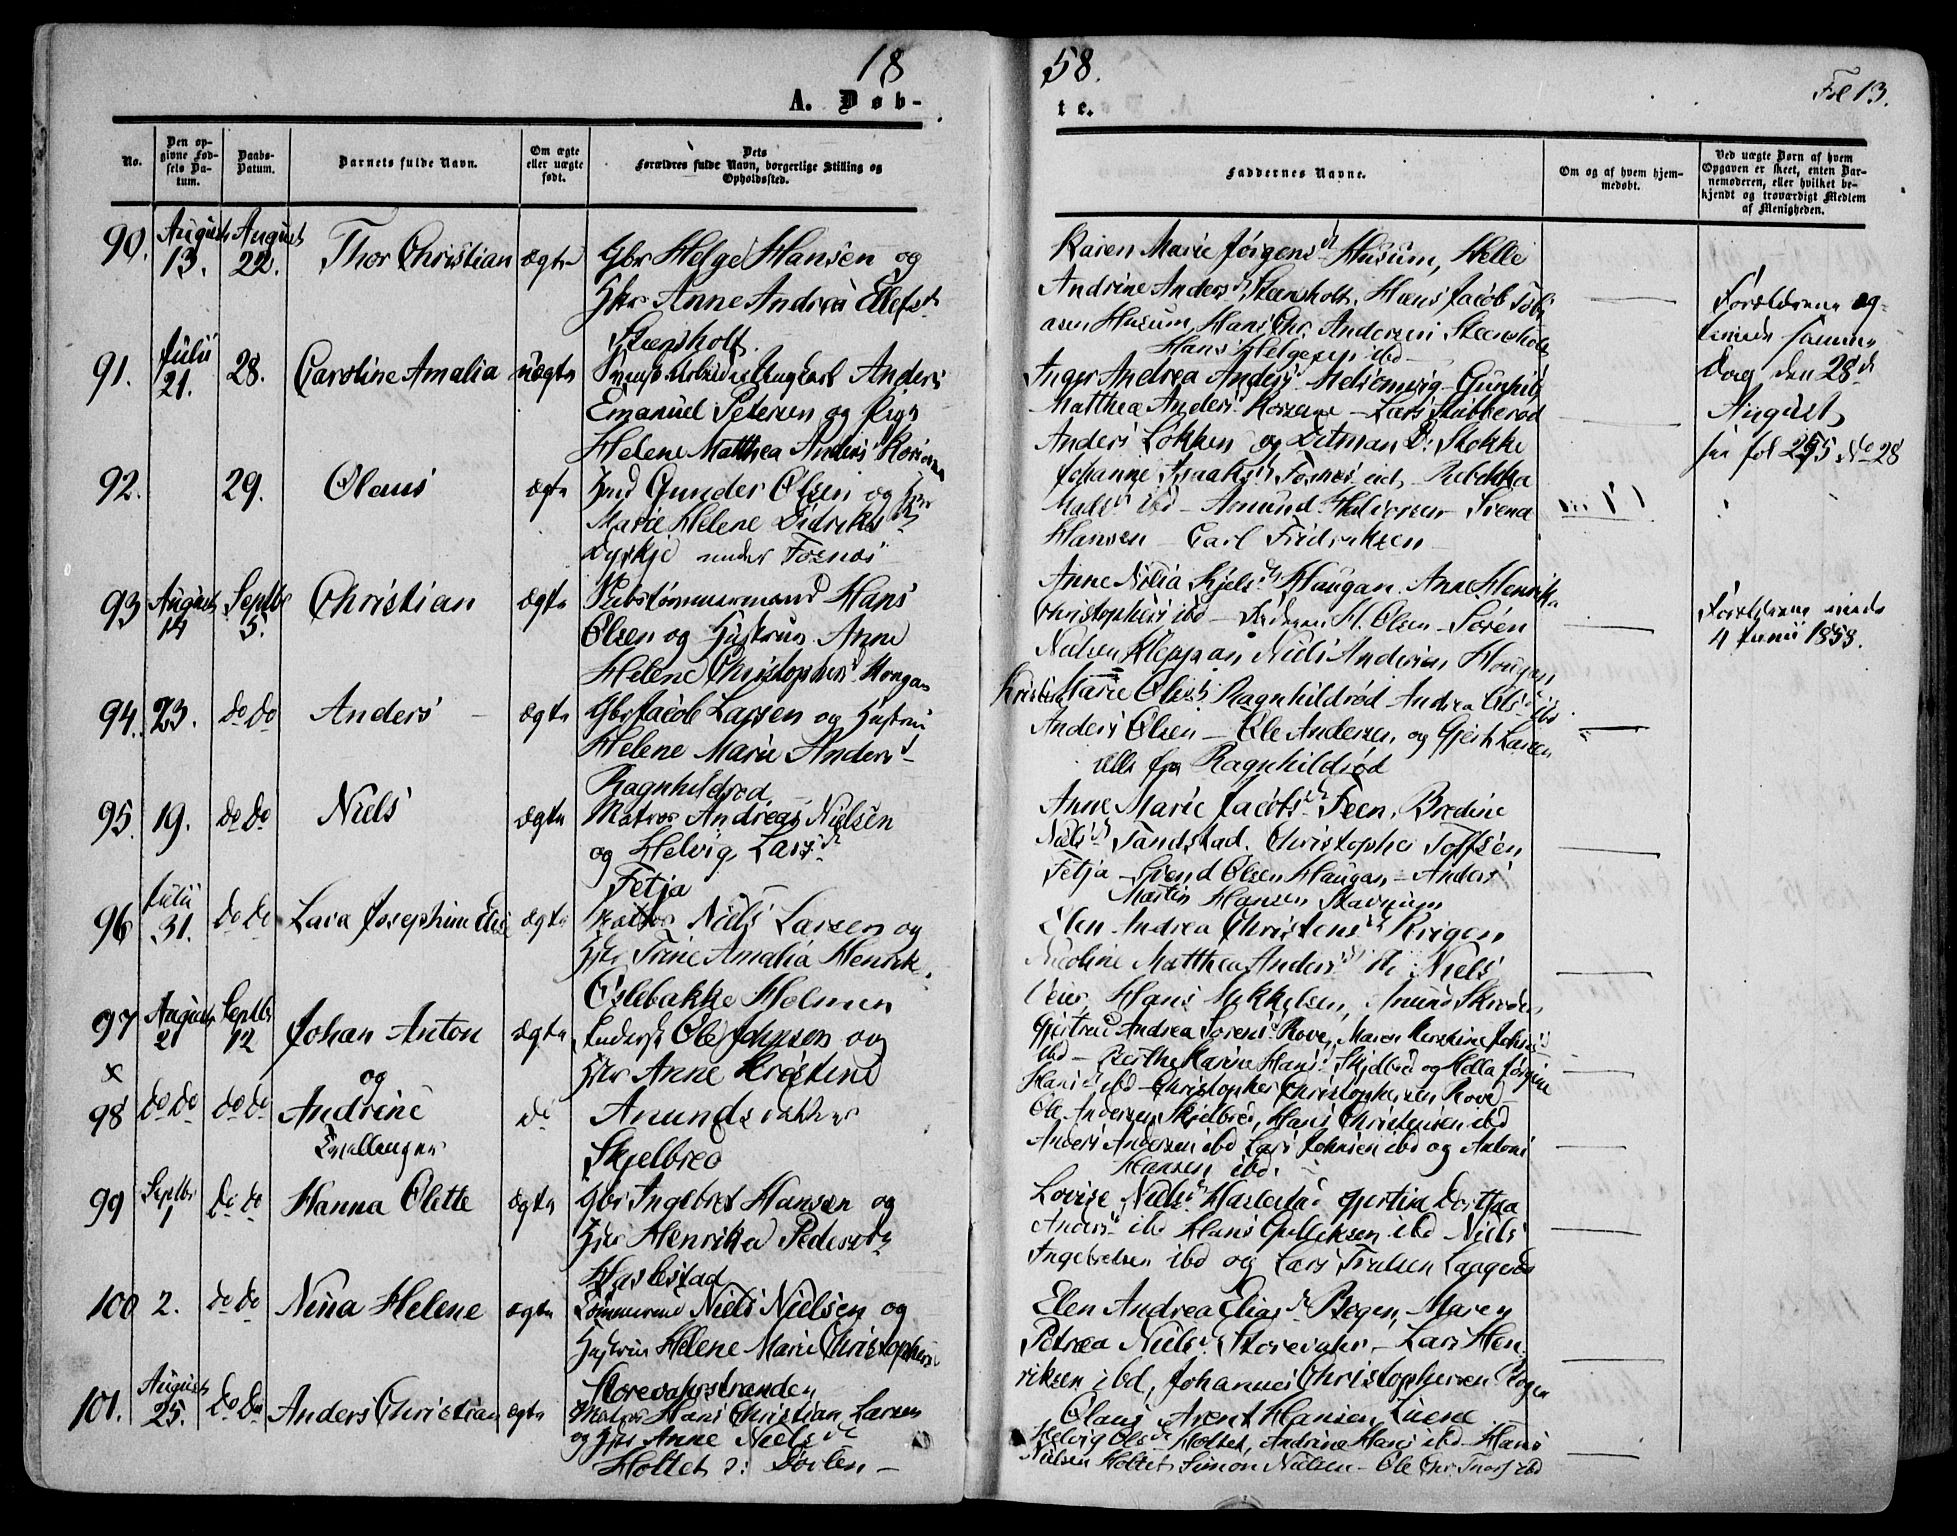 18
58.
Fol 13.
A. Døb-
te.
No.
Den op-
givne Fød-
sels Da-
tum.
Daabs-
Datum.
Barnets fulde Navn.
Om ægte
eller uægte
født.
Dets
Forældres fulde Navn, borgerlige Stilling og
Opholdssted.
Faddernes Navne.
Om og af hvem hjem-
medøbt.
Ved uægte Børn af hvem
Opgaven er skeet, enten Bar-
nemoderen, eller hvilket be-
kjendt og troværdigt Medlem
af Menigheden.
90. August 13. August 22. Thor Christian ægte Gbr Helge Hansen og
Hstr Anne Andrea Ellefsd
Steensholt.
Karen Marie Jørgensd Husum, Helle
Andrine Andersd Steensholt, Hans Jacob Tobi
asen Husum, Hans Chr. Andersen Steensholt
Hans Helgesen ibd
91. Julii 21. 28. Caroline Amalia uægte Anders
Emanuel Petersen og Pige
Helene Matthea Andersd
Inger Andrea Andersd Melsomvig - Gunhild
Matthea Andersd - Lars Stubberød
Anders Løkken og Ditman D. Stokke
Forældrene
samme
Dag den 28de
August
see fol 295 No 28
92. 29. Olaus ægte Hmd Gunder Olsen og Hstr
Marie Helene Didriksd
under Fosnæs
Johanne Isaaksd Fosnæs eid, Rebekka
Madsd ibd - Amund Halvorsen - Svend
Hansen - Carl Fredriksen
93 August 14 Septbr 5. Christian ægte Hans
Olsen og Hustrue Anne
Helene Christophersd Haugan
Anne Nilia Kjelsd Haugan. Anne Henrikke
Christophersd ibd - H. Olsen - Søren
Nielsen Kleppan Niels Andersen Haugan
Forældrene viede
4 Junii 1858.
94. 23. do do Anders ægte Gbr Jacob Larsen og Hustrue
Helene Marie Andersd
Ragnhildrød
Marie Olsd Ragnhildrød Andrea Olsd ibd
Anders Olsen - Ole Andersen og Gjert Larsen
alle fra Ragnhildrød
95. 19. do do Niels ægte Matros Andreas Nielsen
og Helvig Larsd
Fetja
Anne Marie Jacobsd Feen, Bredine
Nielsd Sandstad. Christopher Toffsen
Fetja - Svend Olsen Haugan - Anders
Martin Hansen Stavnum
96 Julii 31. do do Lava Josephine Elise ægte Matros Niels Larsen og
Hstr Trine Amalia Henrik
Oslebakke Holmen
Elen Andrea Christensd
Nicoline Matthea Andersd Niels
Hans Mikkelsen,
97 August 21 Septbr 12 Johan Anton ægte Ole Johnsen og
Hstr Anne Kristine
x og
98 do do do do Andrine do Anundsdatter
Tvillinger Skjelbred
Gjertrud Andrea Sørensd Rove, Maren Kerstine Johnsd
ibd - Berthe Karine Hansd Skjelbred og Hella Jørgine
Hansd ibd - Christopher Christophersen Rove
Ole Andersen Skjelbred, Hans Christensen ibd
Anders Andersen ibd Lars Johnsen ibd og Antoni
Hansen ibd.
99 Septbr 1 do do Hanna Olette ægte Gbr Ingebret Hansen og
Hstr Henrika Pedersd
Haslestad
Lovise Nielsd Haslestad Gjertine Dorthea
Andersd ibd Hans Gulliksen ibd Niels
Ingebretsen ibd og Lars
100 2. do do Nina Helene ægte Tømmermd Niels Nielsen og
Hustrue Helene Marie Christophersd
Storevahrstranden
Elen Andrea Eliasd Bogen, Maren
Petrea Nielsd Storevahr - Lars Hen
riksen ibd, Johannes Christophersen Bogen
Olaus Arent Hansen
101. August 25. do do Anders Christian ægte Matros Hans Christian Larsen
og Hstr Anne Nielsd
Holtet
Helvig Olsd Holtet, Andrine Hansd ibd - Hans
Nielsen Holtet Simon Nielsen - Ole Chr. ibd